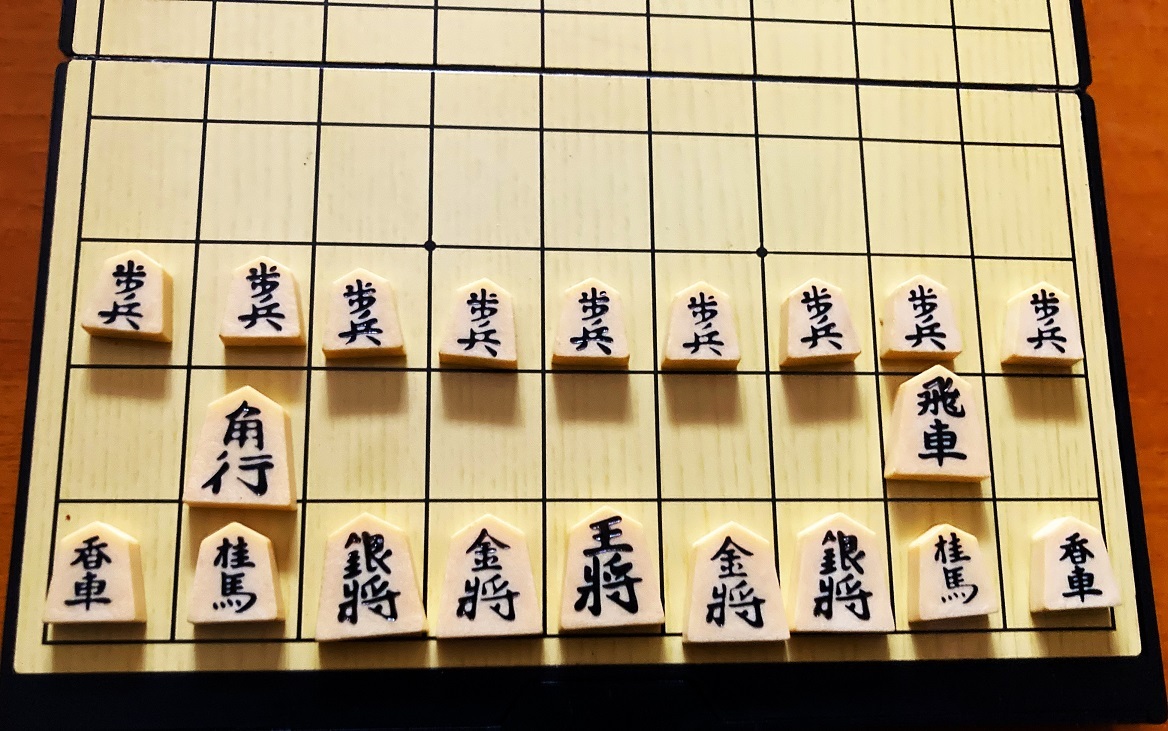 歩兵 歩兵 歩兵 歩兵 歩兵 歩兵 歩兵 歩兵 歩兵
角行 飛車
香車 桂馬 銀將 金將 王將 金將 銀將 桂馬 香車